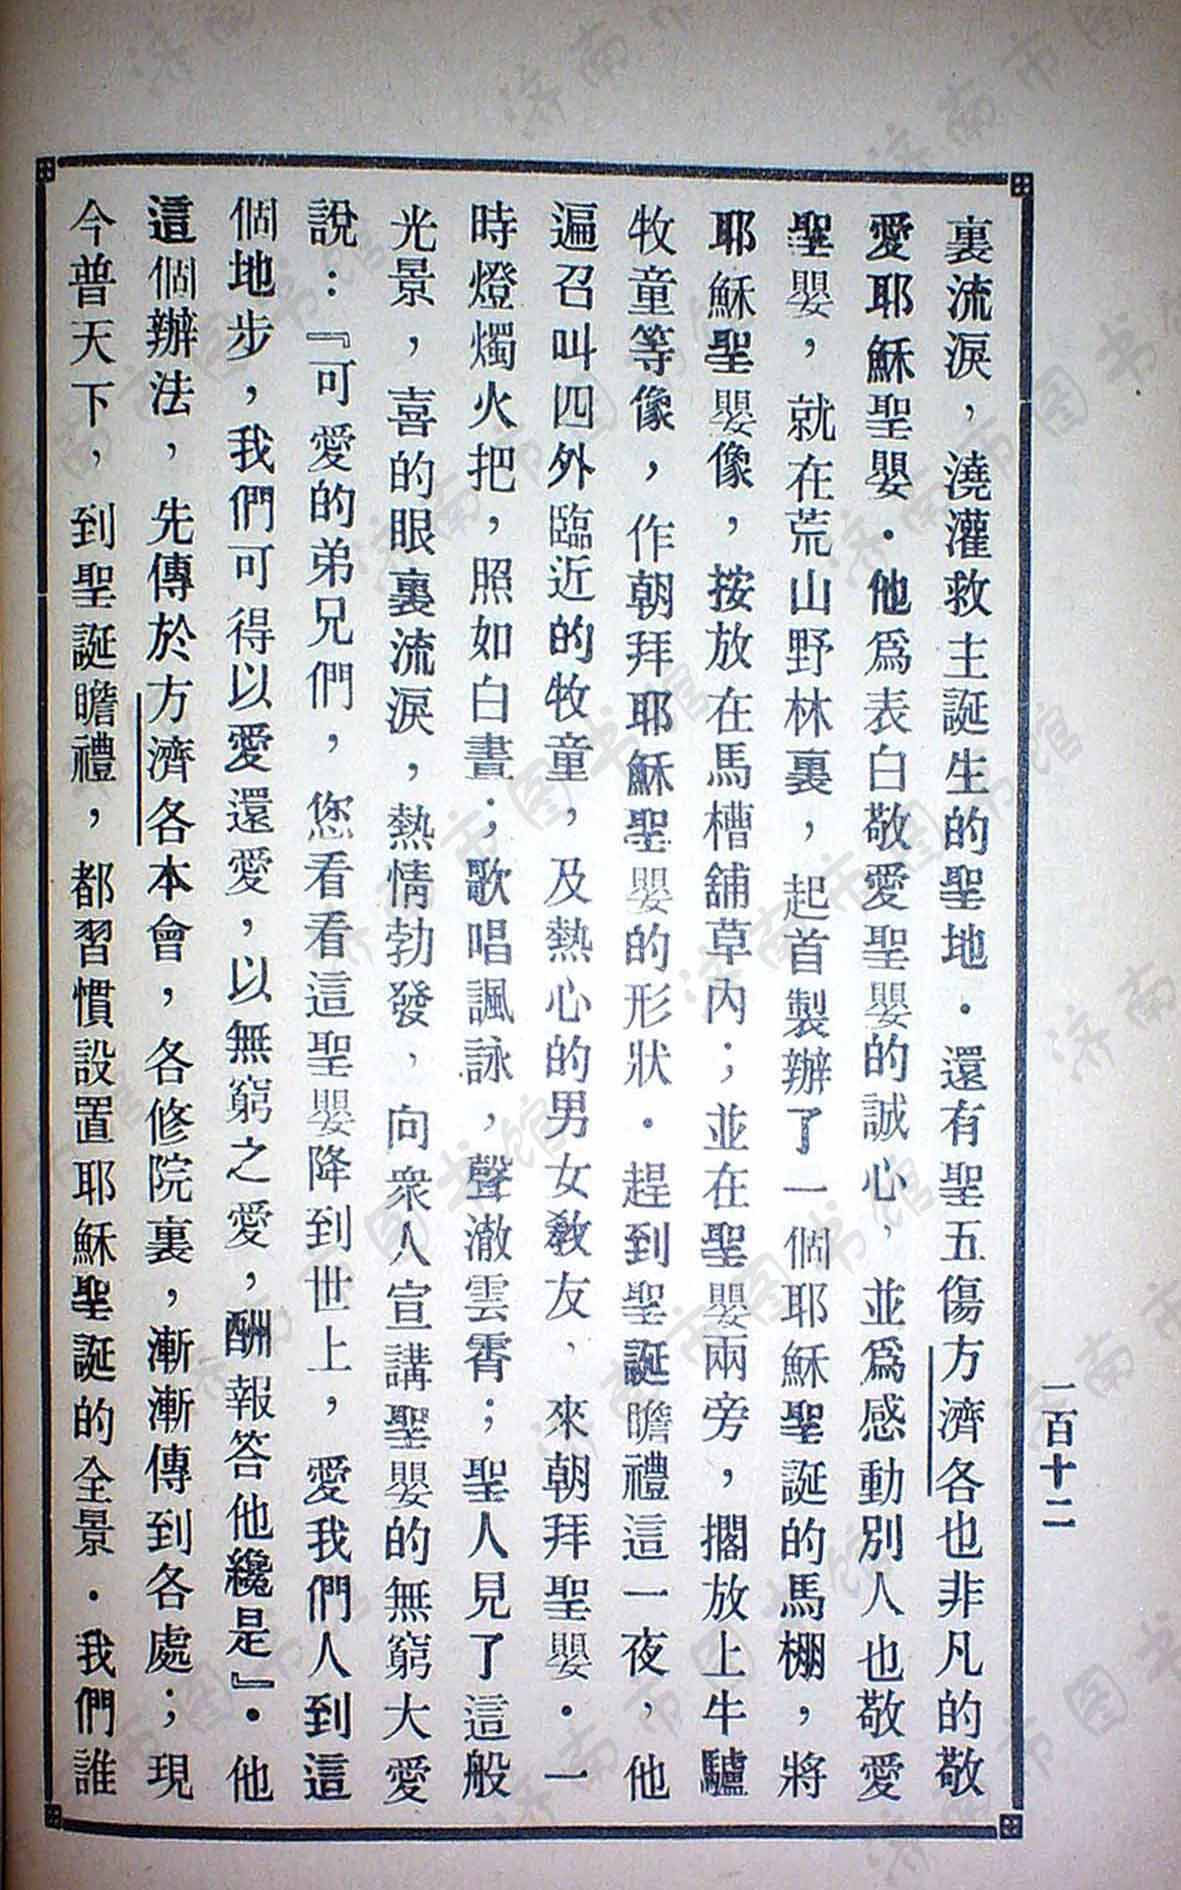 裏流淚，澆灌救主誕生的聖地．還有聖五傷方濟各也非凡的敬
愛耶穌聖嬰．他爲表白敬愛聖嬰的誠心，並爲感動別人也敬愛
聖嬰，就在荒山野林裏，起首製辦了一個耶穌聖誕的馬棚，將
耶穌聖嬰像，按放在馬槽舖草內；並在聖嬰兩旁，擱放上牛驢
牧童等像，作朝拜耶穌聖嬰的形狀．趕到聖誕瞻禮這一夜，他
遍召叫四外臨近的牧童，及熱心的男女敎友，來朝拜聖嬰．一
時燈燭火把，照如白晝；歌唱諷詠，聲澈雲霄；聖人見了這般
光景，喜的眼裏流淚，熱情勃發，向衆人宣講聖嬰的無窮大愛
說：『可愛的弟兄們，您看看這聖嬰降到世上，愛我們人到這
個地步，我們可得以愛還愛，以無窮之愛，酬報答他纔是』．他
這個辦法，先傳於方濟各本會，各修院裏，漸漸傳到各處；現
今普天下，到聖誕瞻禮，都習慣設置耶穌聖誕的全景．我們誰
一百十二
济南市图书馆